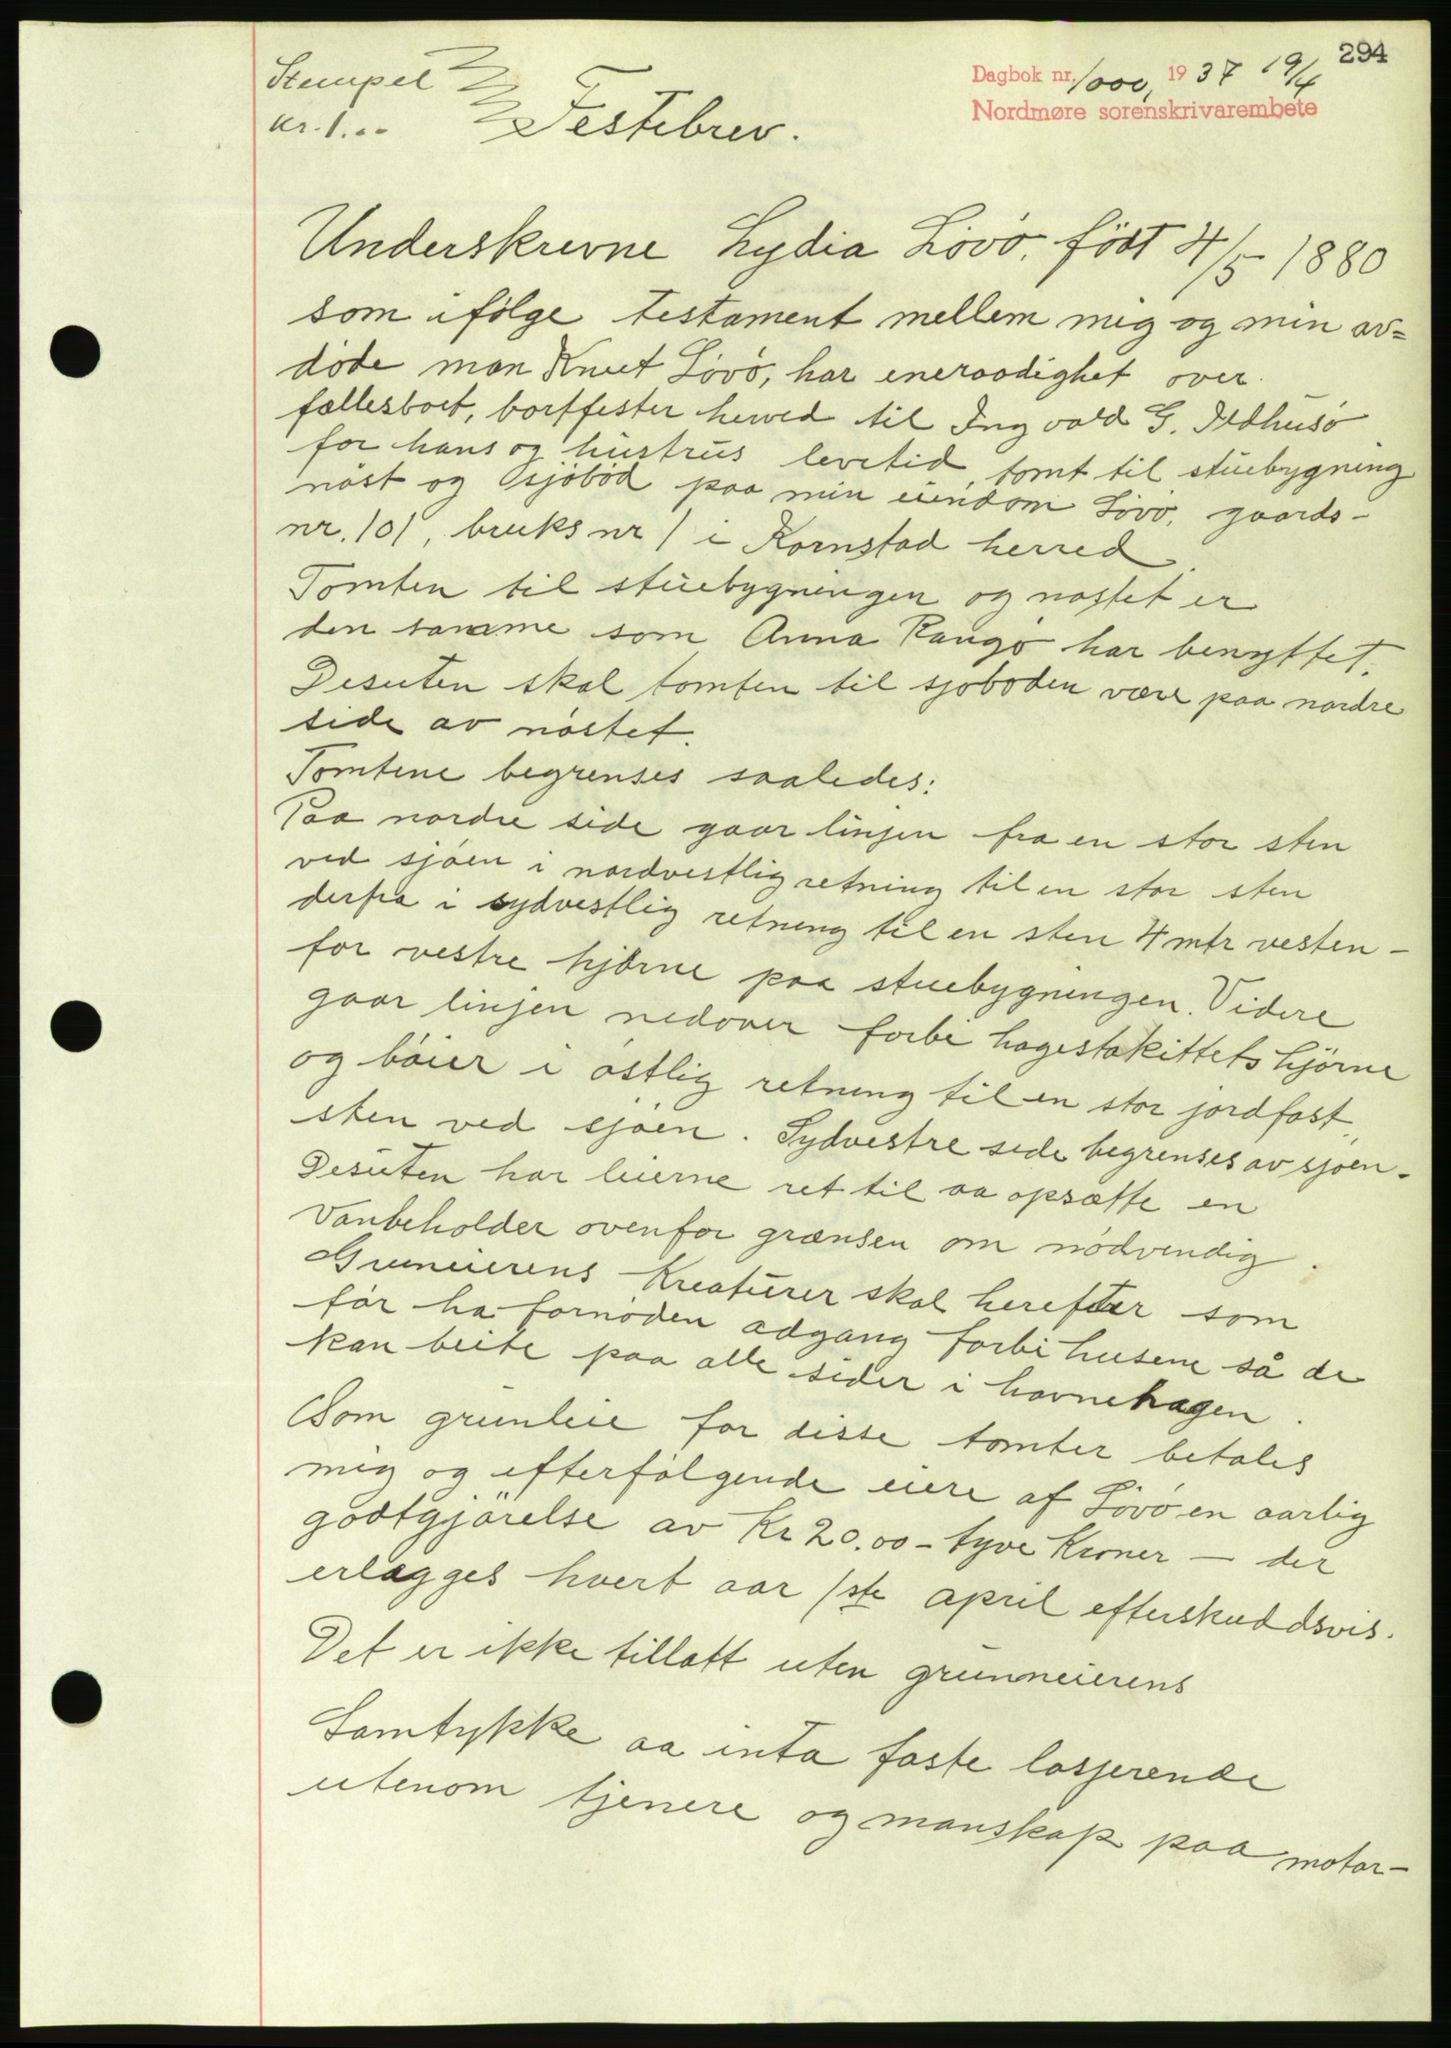 294
Stempel
Kr. 1.00
Dagbok nr. 1000, 1937 19/4
Nordmøre sorenskrivarembete
Festebrev.
Underskrevne Lydia Lövö, född 4/5 1880
som ifölge testament mellem mig og min av=
döde man Knut Lövö, har eneraadighet over
fællesboet, bortfester herved til Ingvald G. Ildhusö
for hans og hustrus levetid, tomt til stuebygning
nöst og sjöbod paa min eiendom Lövö, gaards-
nr. 101, bruks nr 1 i Kornstad herred.
Tomten til stuebygningen og nöstet er
den samme som Anna Rangö har benyttet.
Desuten skal tomten til sjöboden være paa nordre
side av nöstet.
Tomtene begrenses saaledes:
Paa nordre side gaar linjen fra en stor sten
ved sjöen i nordvestlig retning til en stor sten
derfra i sydvestlig retning til en sten 4 mtr vesten-
for vestre hjörne paa stuebygningen. Videre
gaar linjen nedover forbi hagestakittets hjörne
og böier i östlig retning til en stor jordfast
sten ved sjöen. Sydvestre side begrenses av sjöen.
Desuten har leierne ret til aa opsætte en
Vanbeholder ovenfor grænsen om nödvendig.
Gruneierens Kreaturer skal herefter som
för ha fornöden adgang forbi husene så de
kan beite paa alle sider i havnehagen.
Som grunleie for disse tomter betales
mig og efterfölgende eiere af Lövö en aarlig
godtgjörelse av Kr 20.00 - tyve Kroner - der
erlægges hvert aar 1ste april efterskuddsvis.
Det er ikke tillatt uten grunneierens
Samtykke aa inta faste losjerende
utenom tjenere og manskap paa motor-